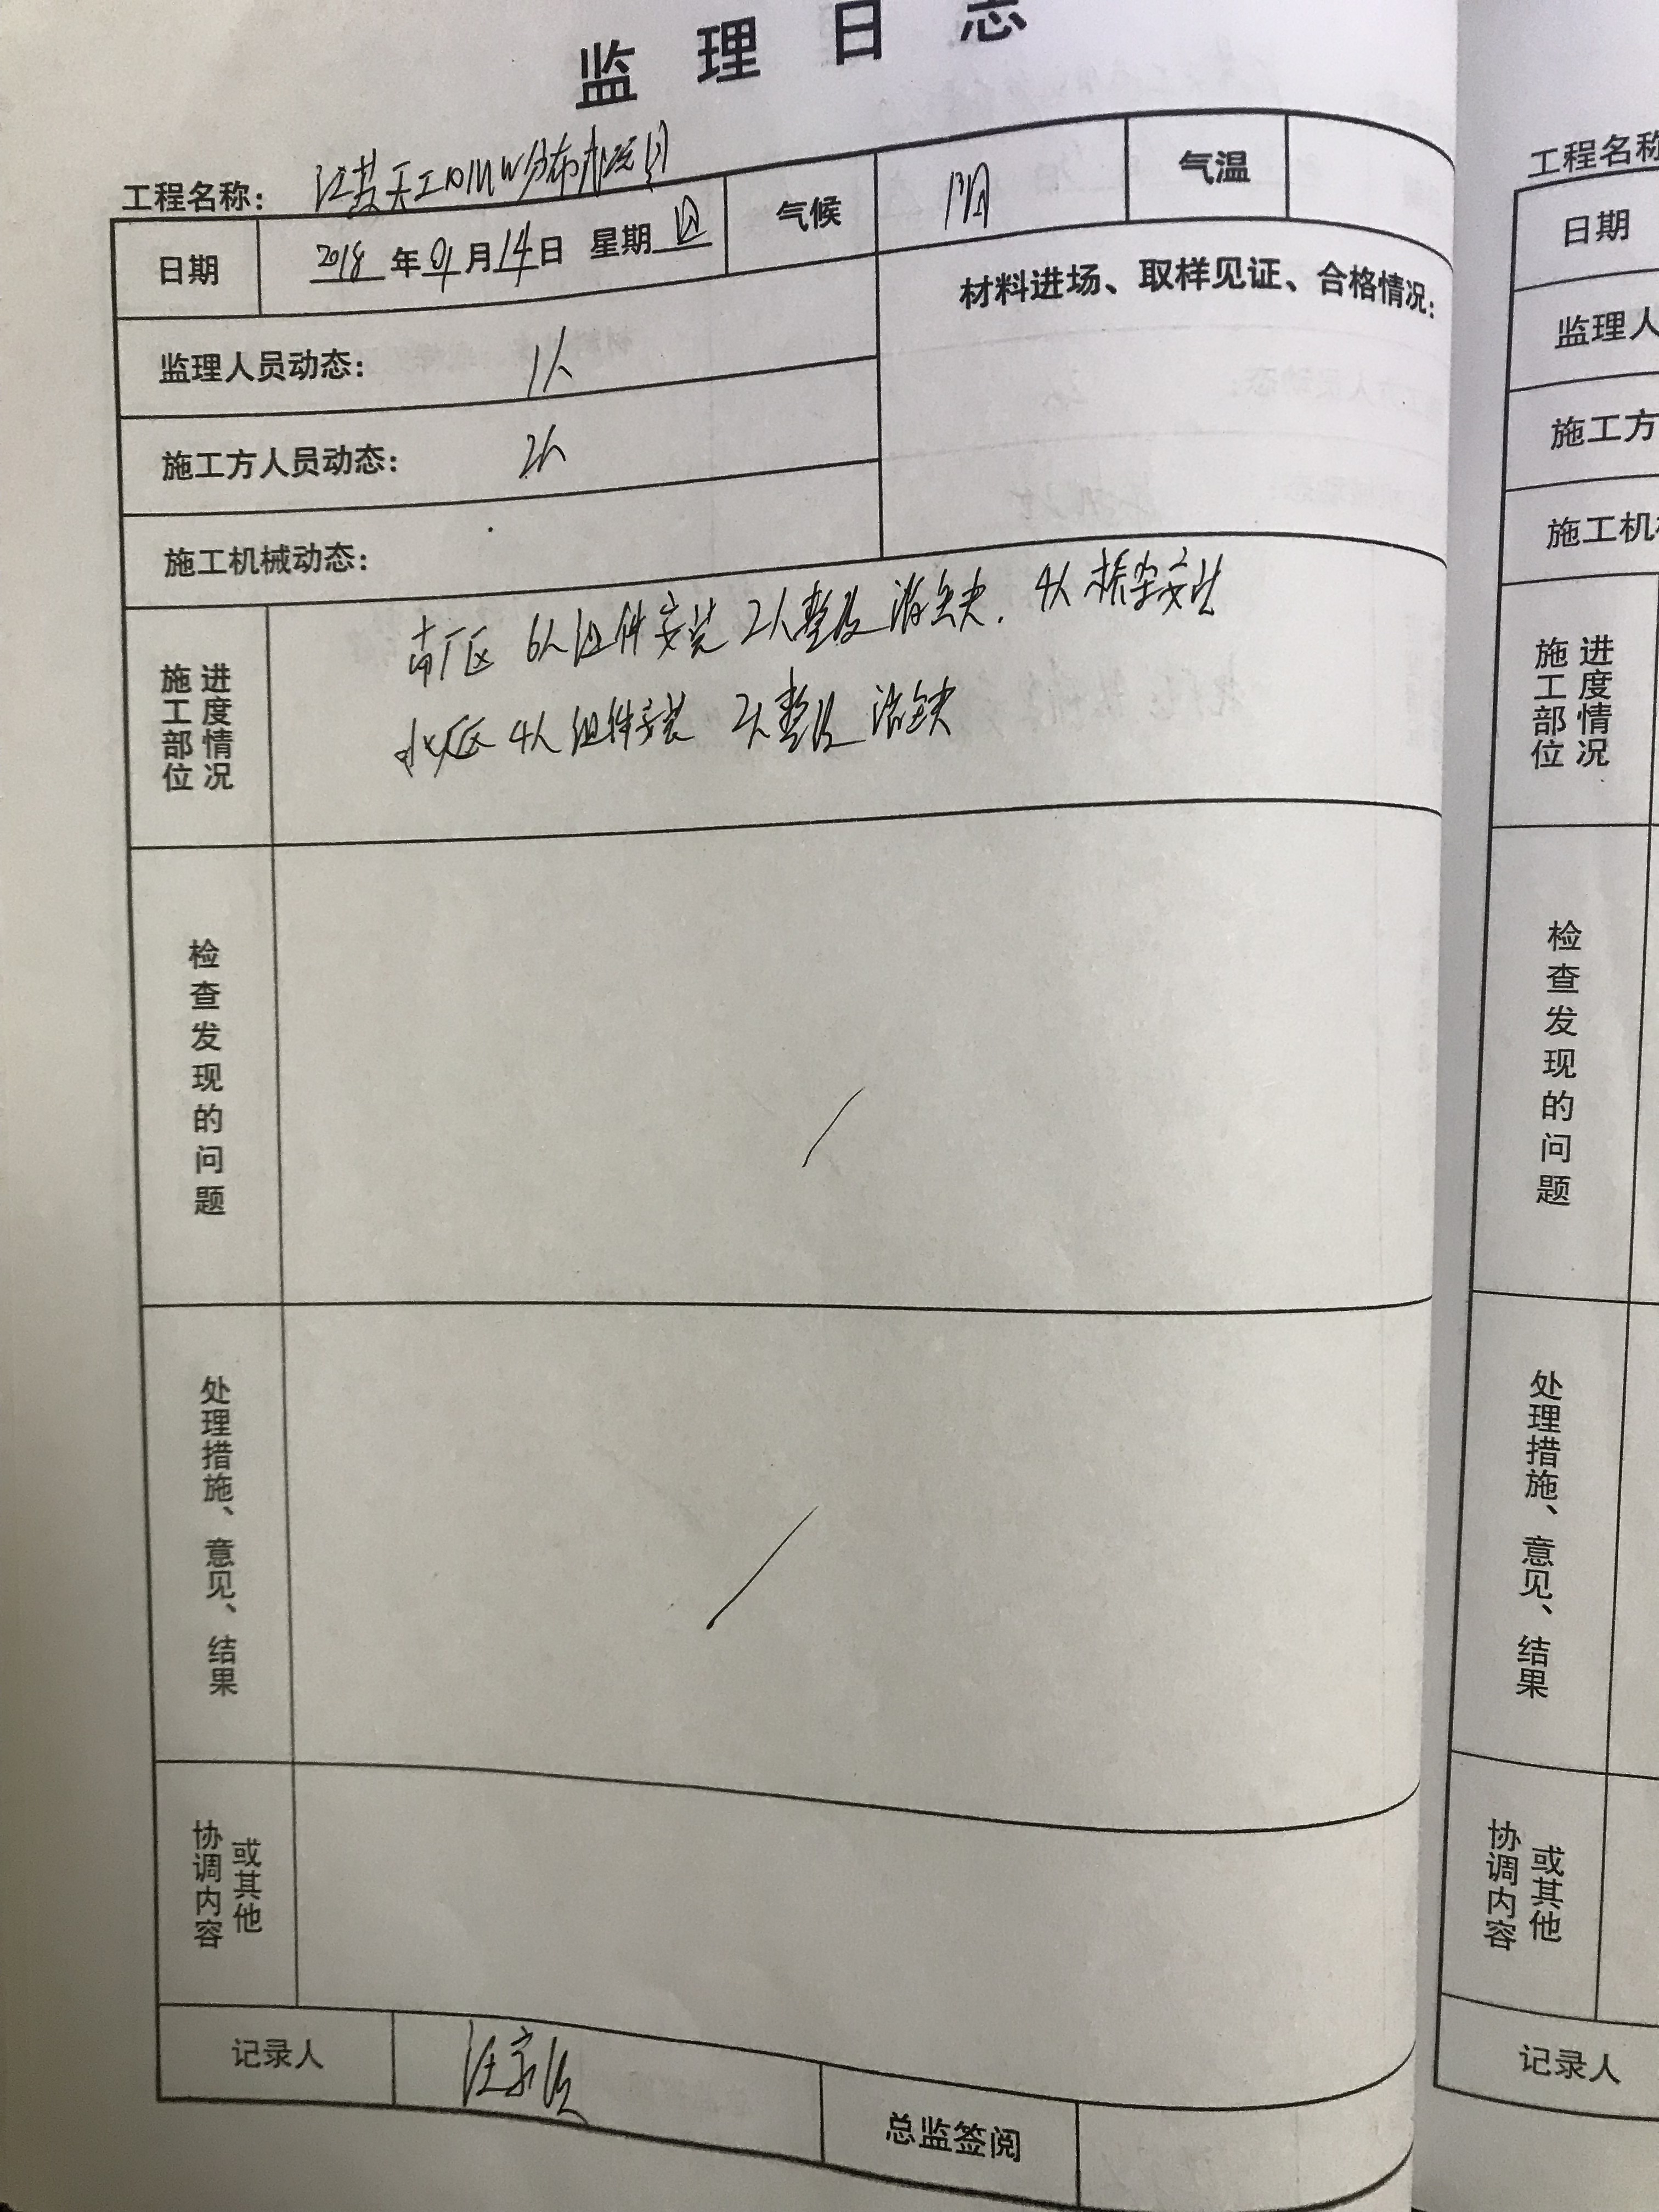 监理日志
工程名称： 江苏天工10MW分布式项目
日期 2018年01月14日 星期四 气候 阴 气温
监理人员动态： 1人 材料进场、取样见证、合格情况：
施工方人员动态：
施工机械动态：
施工部位 进度情况
南厂区 6人组件安装 2人整改消缺. 4人桥架安装
北厂区 4人组件安装 2人整改 消缺
检查发现的问题
处理措施、意见、结果
协调内容 或其他
记录人 总监签阅
工程名称
日期
监理人
施工方
施工机
施工部位 进度情况
检查发现的问题
处理措施、意见、结果
协调内容 或其他
记录人